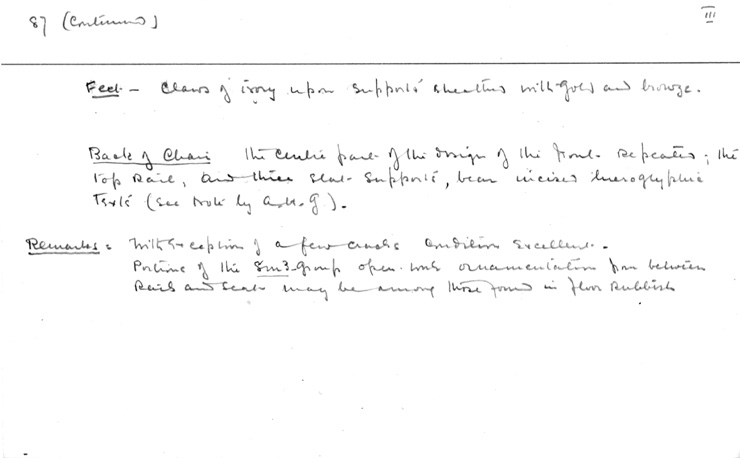 87 (Continued)
III
Feet - Claws of ivory upon supports sheathed with gold and bronze.
Back of Chair The centre part of the design of the front repeated; the
top Rail, and three slat supports, bear incised hieroglyphic
texts (see Note by A.H.G).
Remarks: With exception of a few cracks condition excellent.
Portions of the Sm3-group open-work ornamentation from between
Rails and seat may be among those found in floor Rubbish